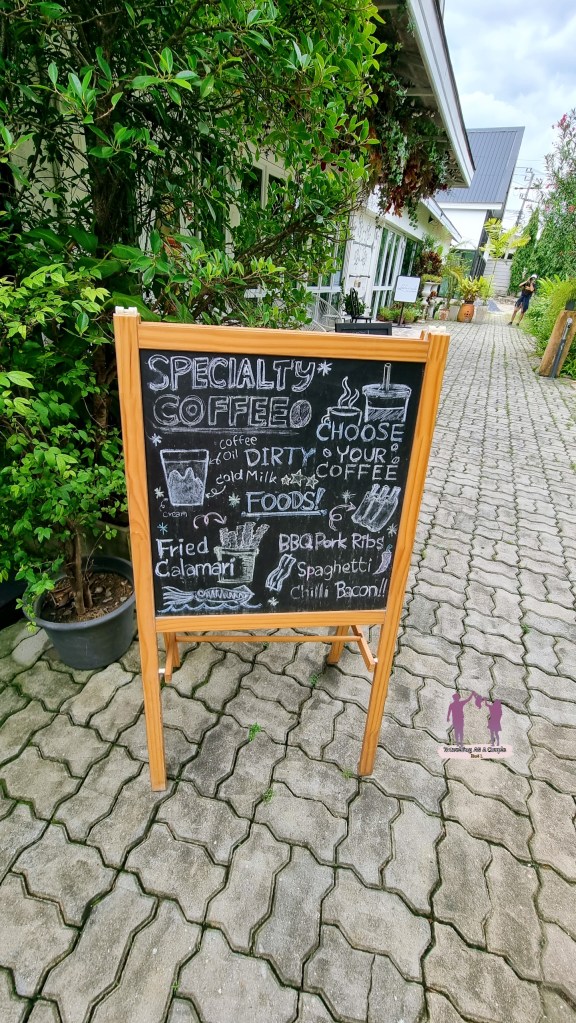 SPECIALTY
COFFEE
CHOOSE
YOUR
COFFEE
coffee
Oil
DIRTY
Cold Milk
Cream
FOODS!
Fried
Calamari
BBQ Pork Ribs
Spaghetti
Chilli Bacon!!
Travelling As A Couple